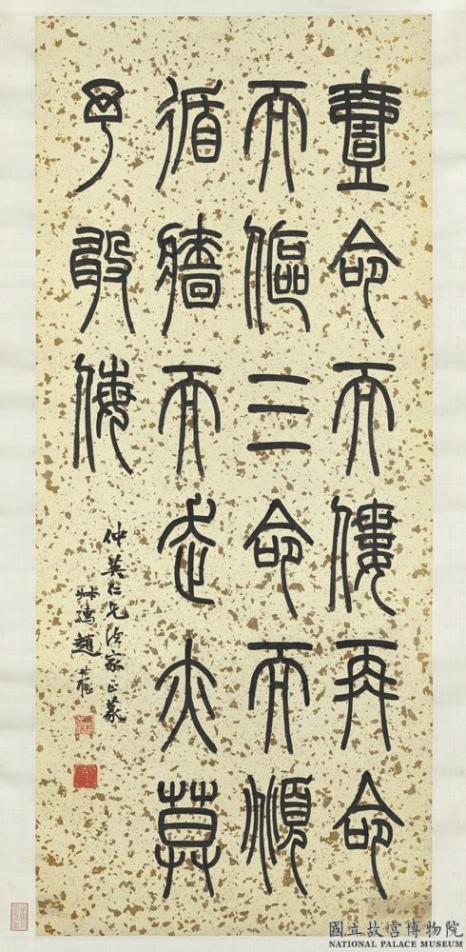 壹命而僂再命
而傴三命而頫
循牆而走亦莫
予敢侮
仲英仁兄法家正篆
叔孺趙時棡
國立故宮博物院
NATIONAL PALACE MUSEUM